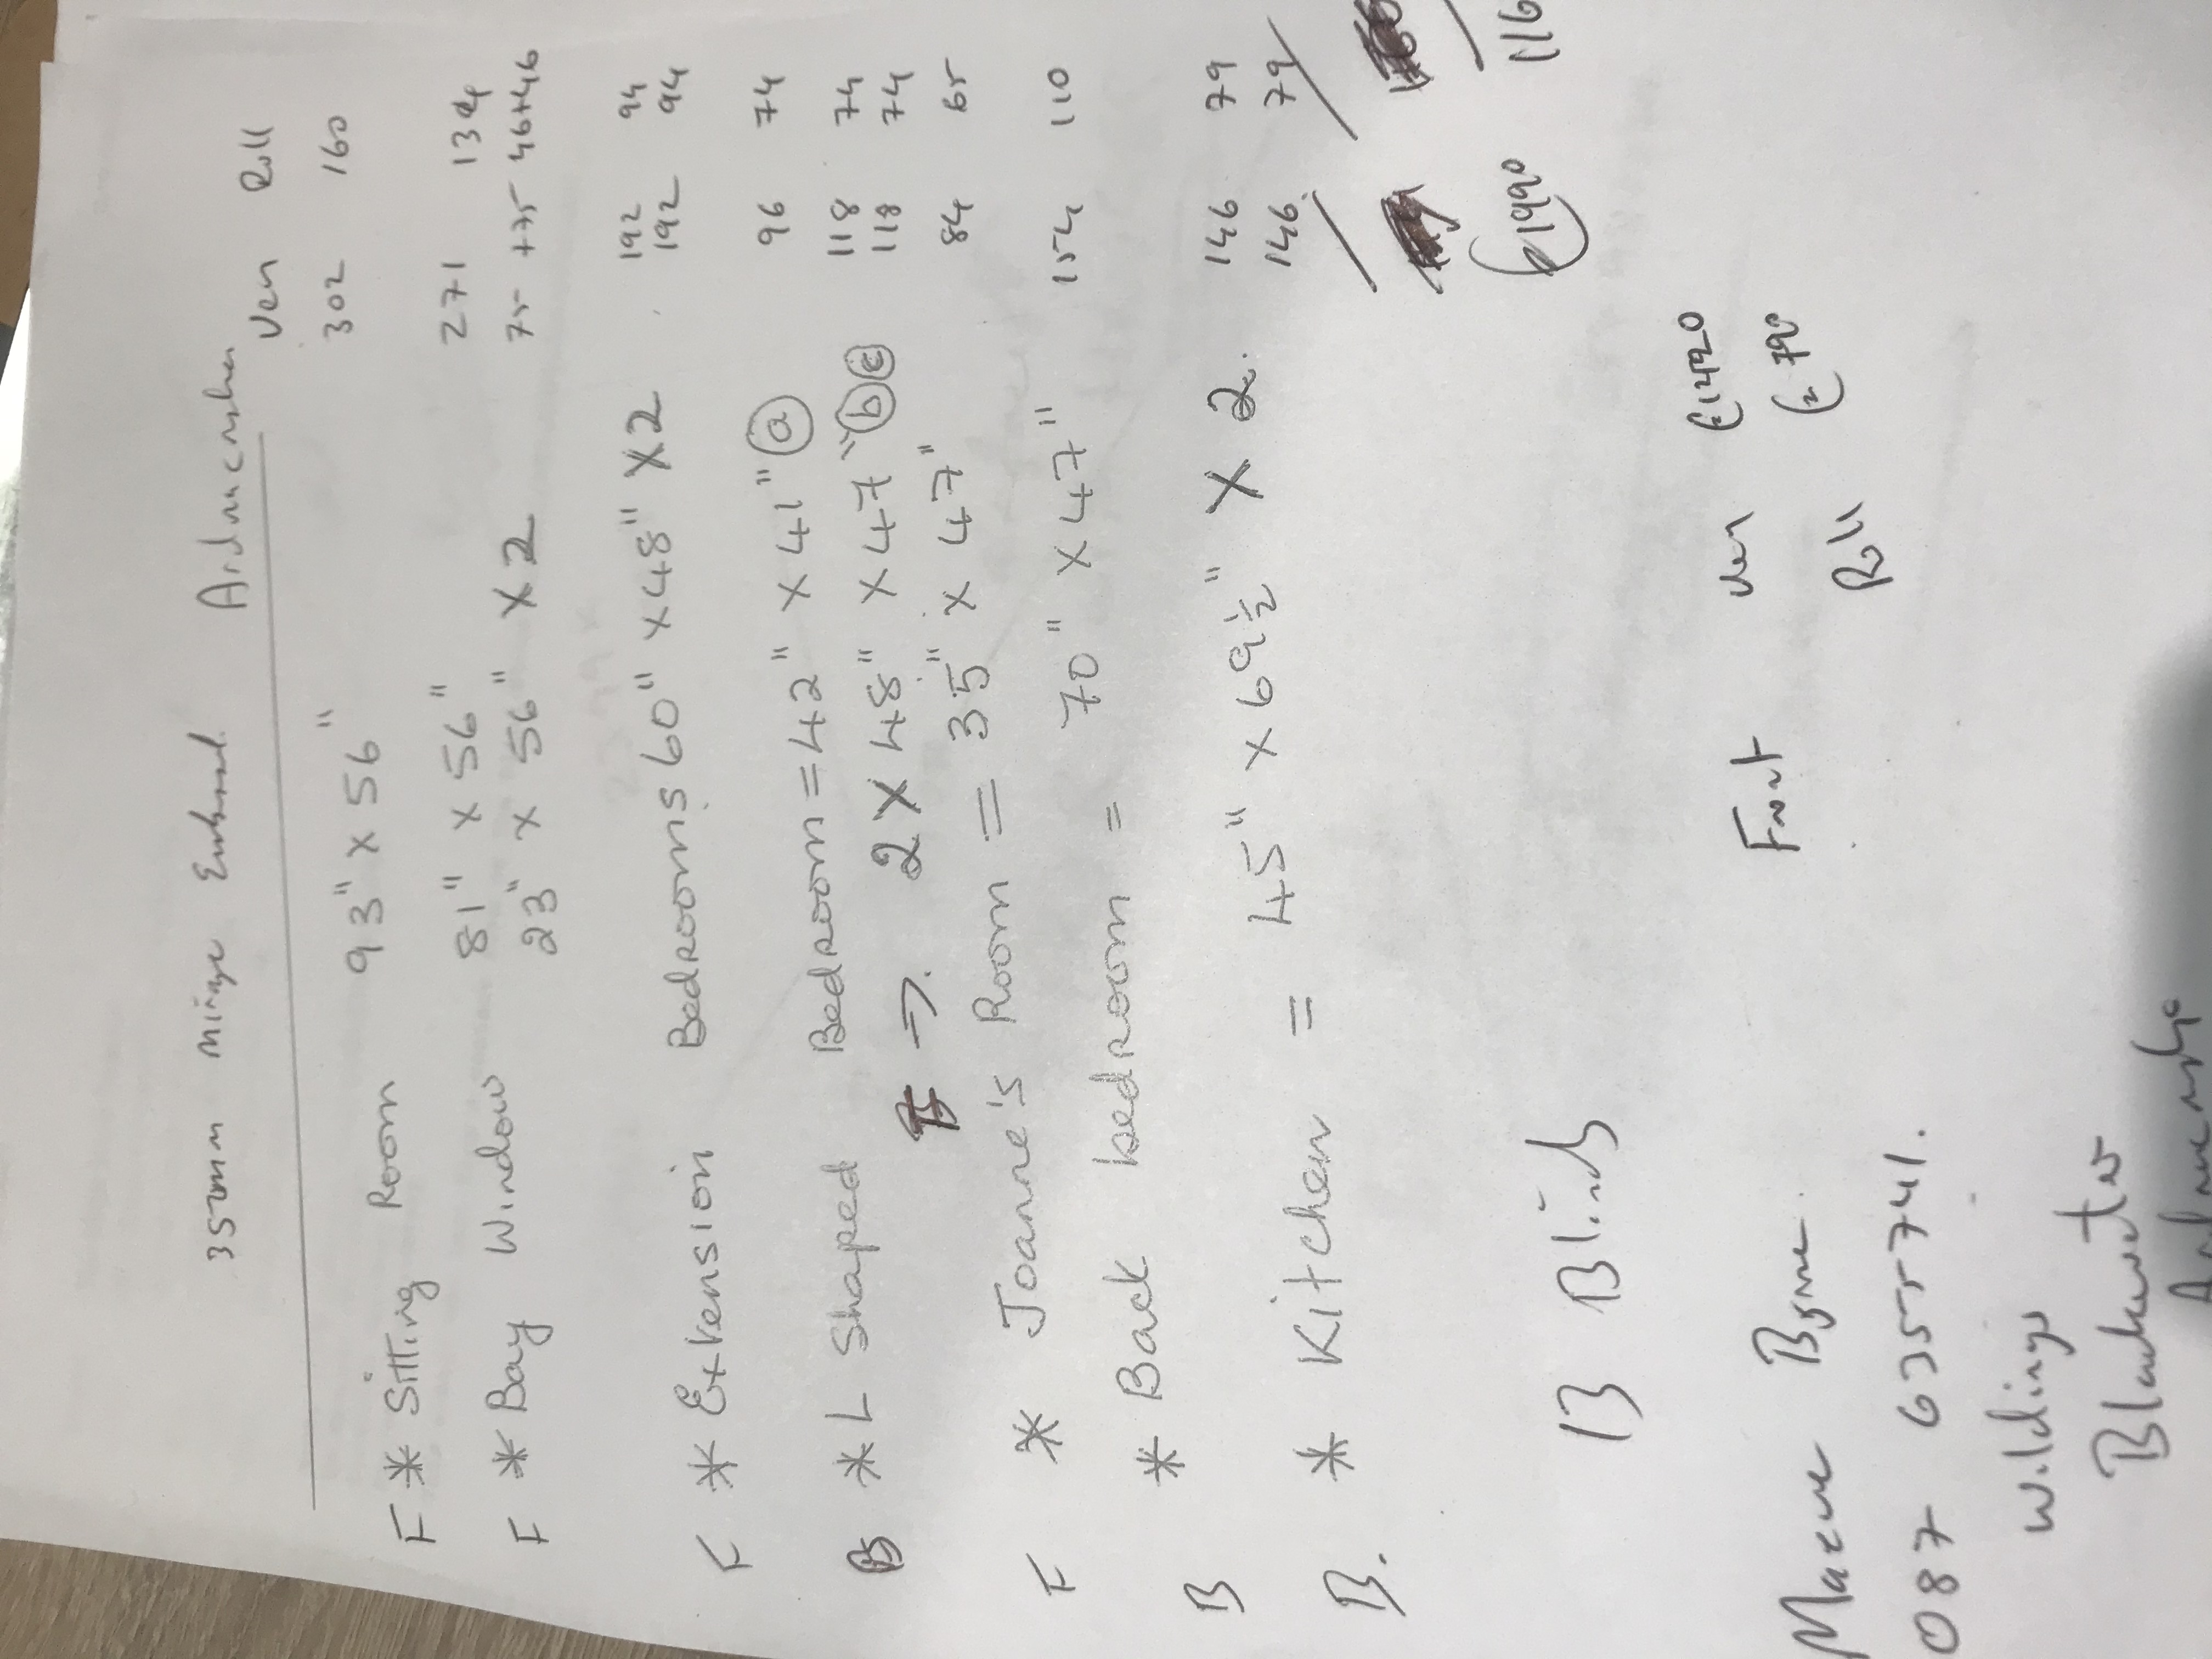 35mm Mirage Ardnacrusha
Ven Roll
F * Sitting Room 93" x 56" 302 160
F * Bay Window 81" x 56" 271 134
23" x 56" x 2 75 + 75 46+46
F * Extension Bedrooms 60" x 48" x 2 192 94
192 94
B * L Shaped Bedroom = 42" x 41" (a) 96 74
→ 2 x 48" x 47" (b) (c) 118 74
118 74
F * Joanne's Room = 35" x 47" 84 65
B * Back bedroom = 70" x 47" 154 110
B. * Kitchen = 45" x 69 1/2" x 2. 146 79
146 79
€1990 116
13 Blinds
Front Ven €1420
Roll € 790
Byrne
087 6355741.
Blackwater